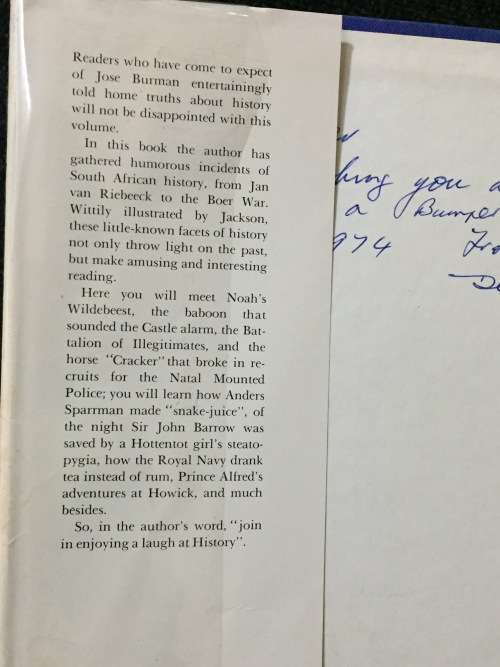 Readers who have come to expect
of Jose Burman entertainingly
told home truths about history
will not be disappointed with this
volume.
In this book the author has
gathered humorous incidents of
South African history, from Jan
van Riebeeck to the Boer War.
Wittily illustrated by Jackson,
these little-known facets of history
not only throw light on the past,
but make amusing and interesting
reading.
Here you will meet Noah's
Wildebeest, the baboon that
sounded the Castle alarm, the Bat-
talion of Illegitimates, and the
horse "Cracker" that broke in re-
cruits for the Natal Mounted
Police; you will learn how Anders
Sparrman made "snake-juice", of
the night Sir John Barrow was
saved by a Hottentot girl's steato-
pygia, how the Royal Navy drank
tea instead of rum, Prince Alfred's
adventures at Howick, and much
besides.
So, in the author's word, "join
in enjoying a laugh at History".
you
a Bumper
974